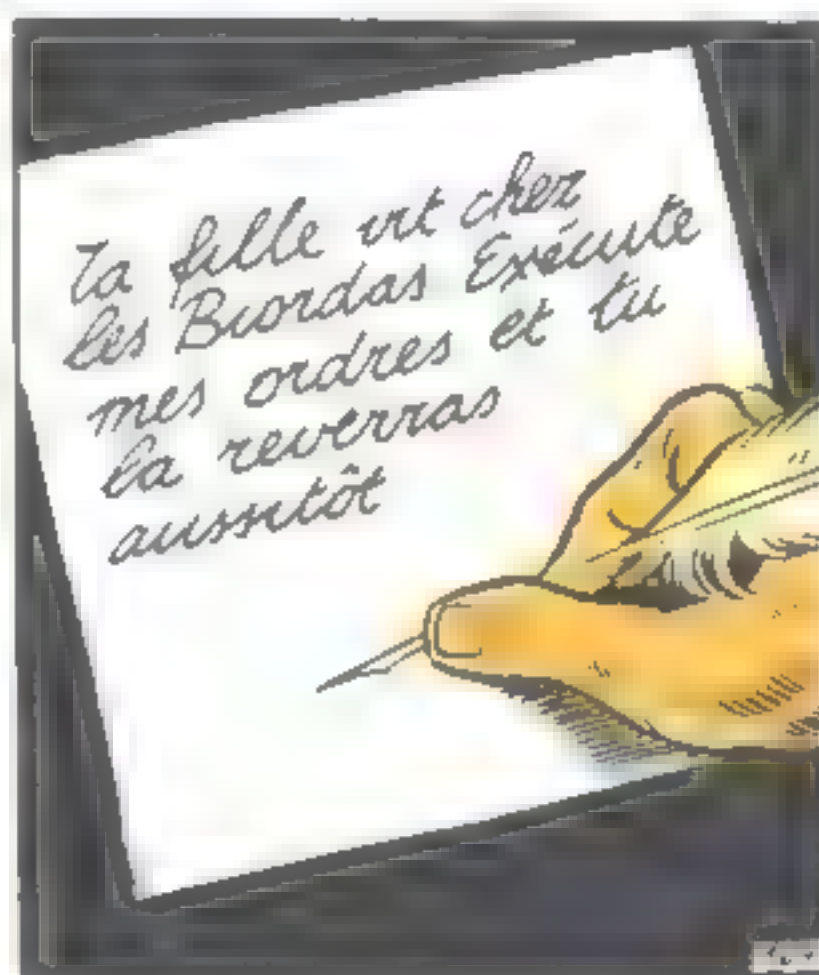 Ta fille vit chez
les Biordas Exécute
mes ordres et tu
la reverras
aussitôt